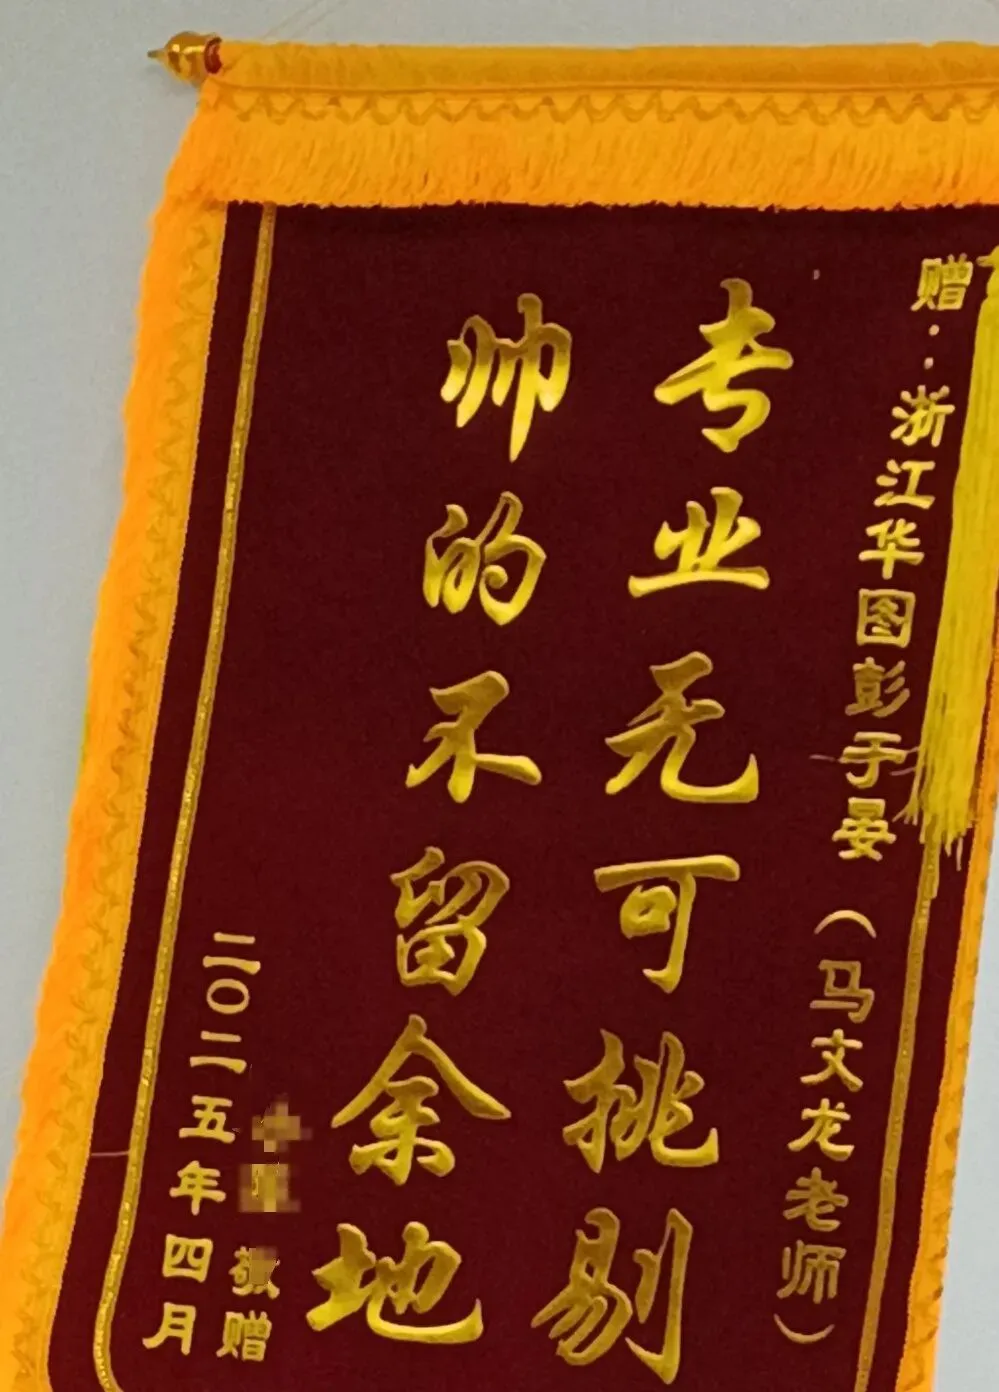 赠：浙江华图彭于晏（马文龙老师）
专业无可挑剔
帅的不留余地
敬赠
二〇二五年四月